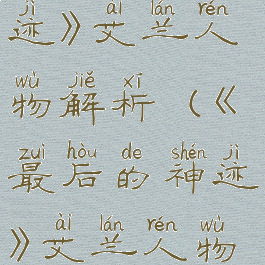 jì ài lán rén
迹》艾兰人
wù jiě xī
物解析（《
zuì hòu de shén jì
最后的神迹
ài lán rén wù
》艾兰人物